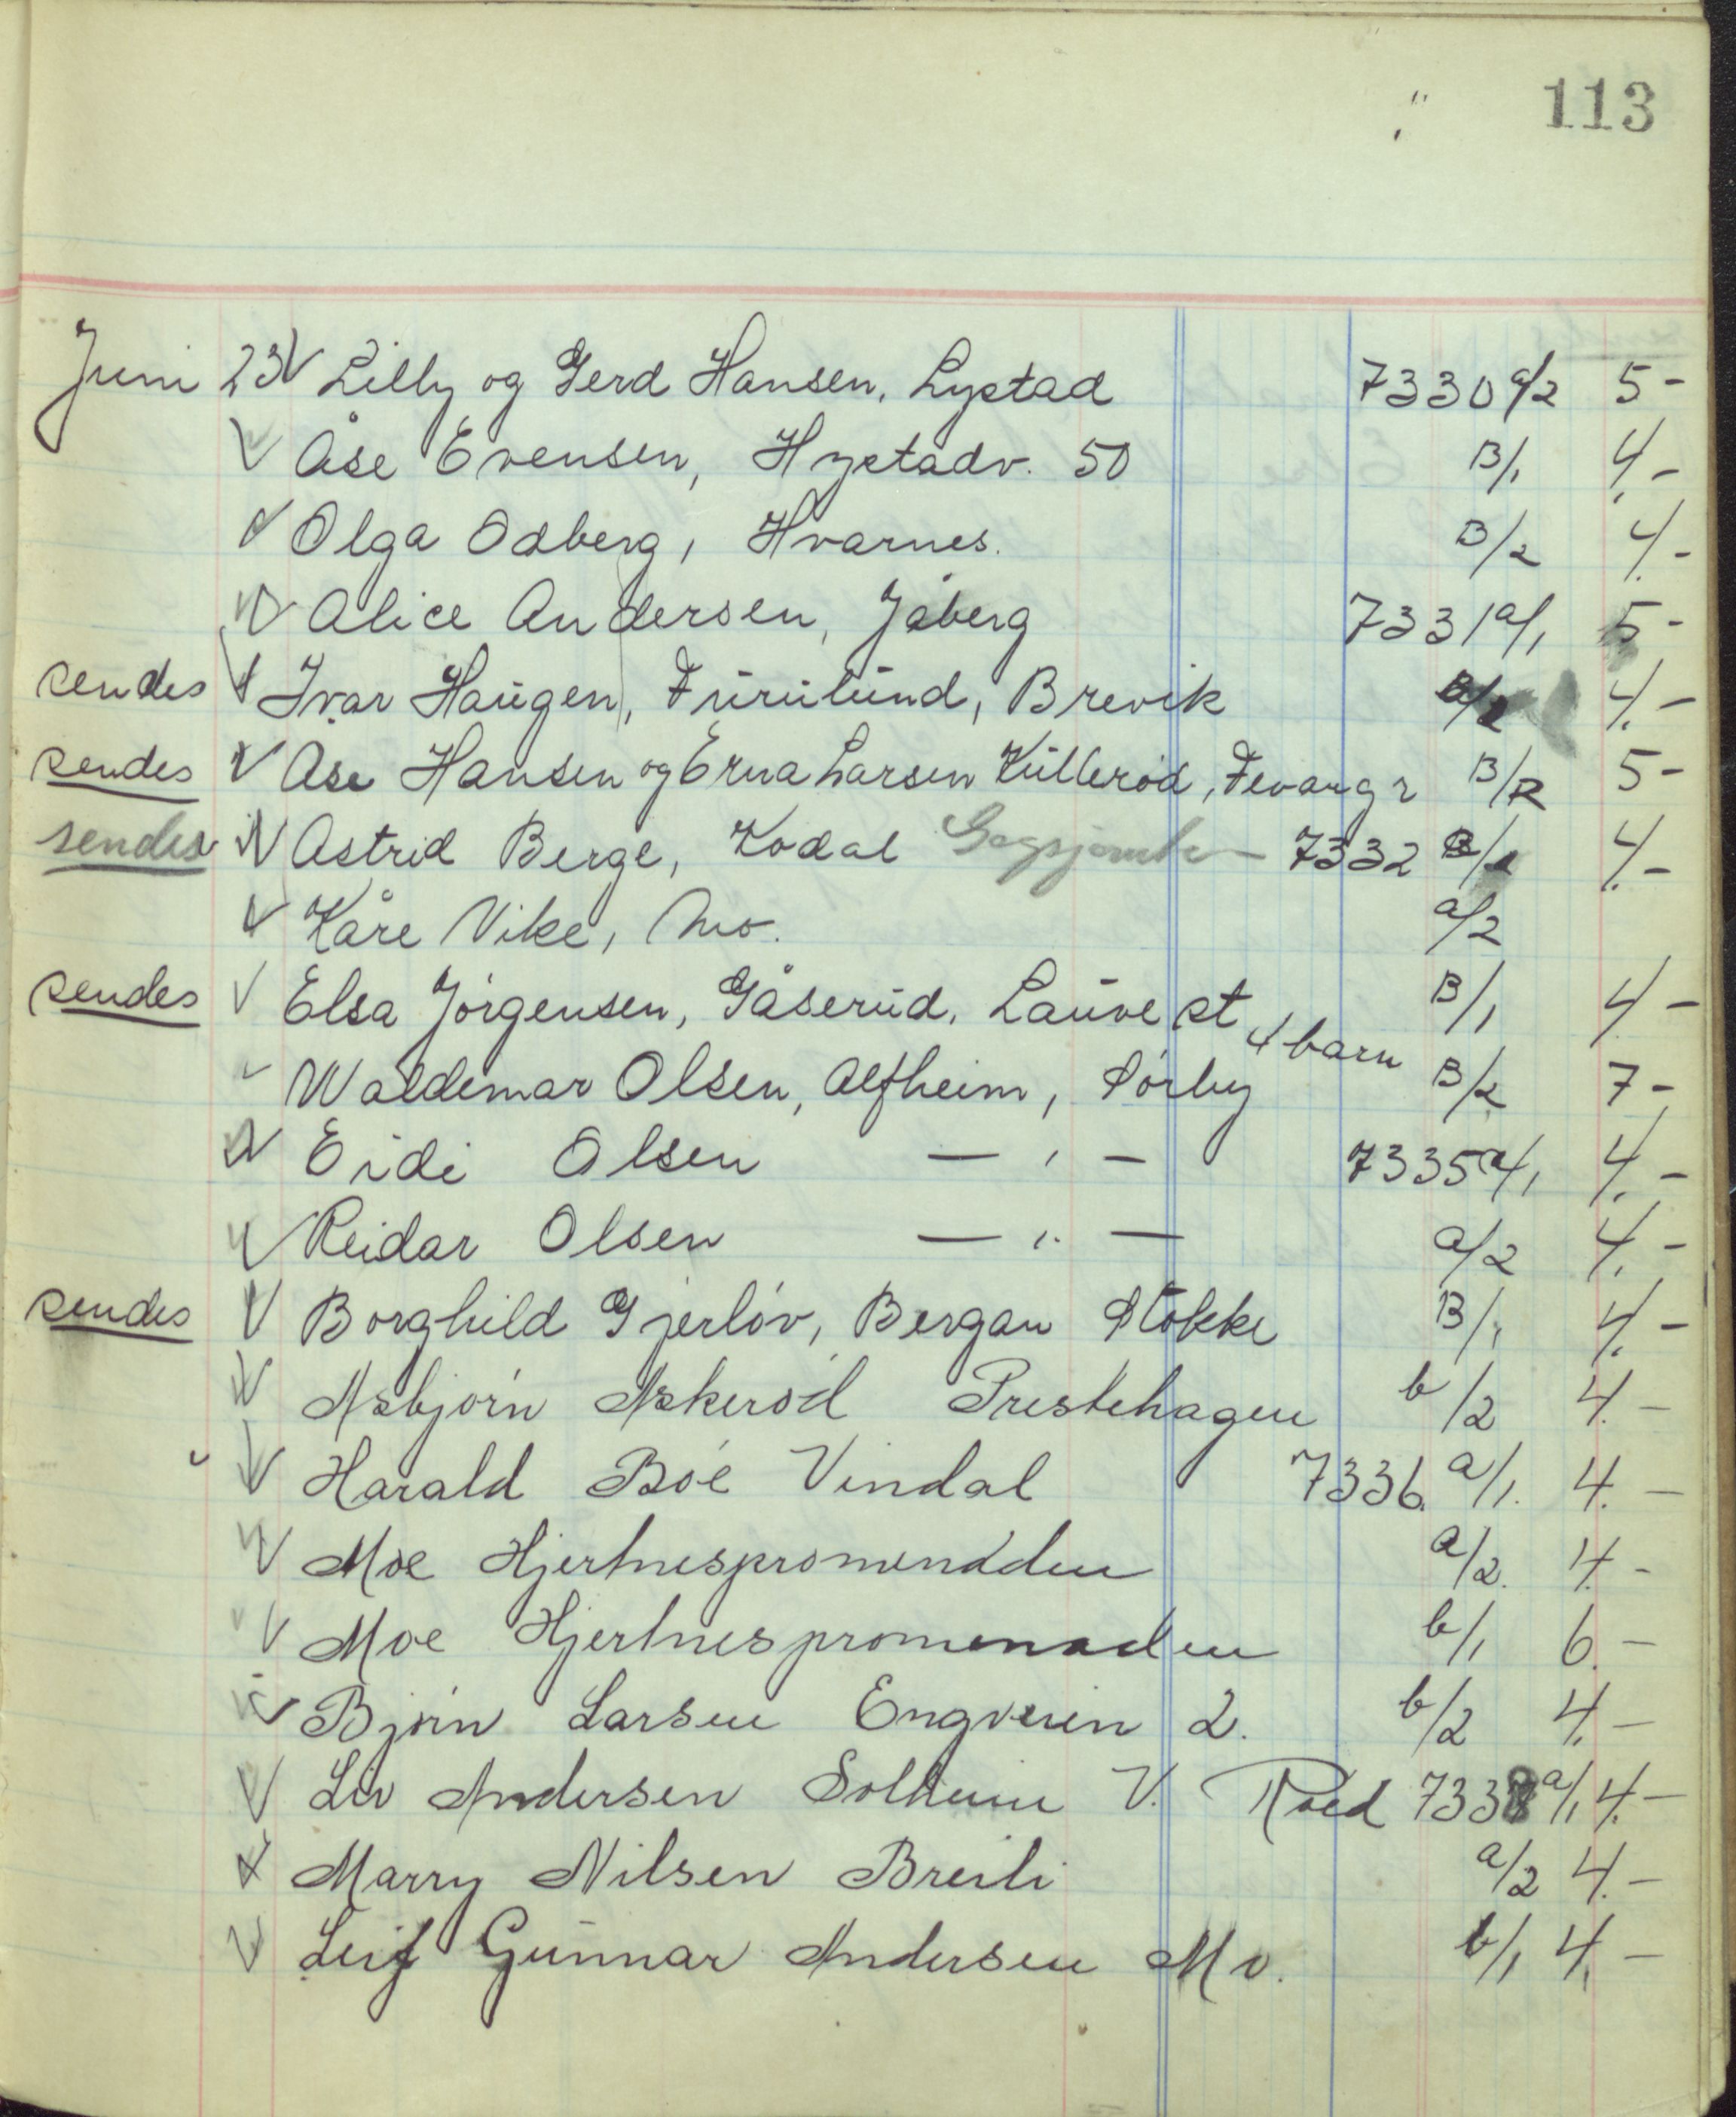 113
Juni 23 V Lilly og Gerd Hansen, Lystad 7330 a/2 5 -
V Åse Evensen, Hystadv. 50 B/1 4.-
V Olga Odberg, Hvarnes. B/2 4.-
V Alice Andersen, Jåberg 7331 a/1 5 -
sendes V Ivar Haugen, Furulund, Brevik 4.-
sendes V Åse Hansen og Erna Larsen Kullerød, Fevang B/2 5 -
sendes V Astrid Berge, Kodal 7332 4.-
V Kåre Vike, Mo. a/2
sendes V Elsa Jørgensen, Gåserud, Lauve st B/1 4 -
4 barn
Waldemar Olsen, Alfheim, Sørby B/2 7 -
V Eidi Olsen — " — 7335 a/1 4.-
V Reidar Olsen — " — a/2 4.-
sendes V Borghild Gjerløv, Bergan Stokke B/1 4.-
V Asbjørn Askerød Prestehagen b/2 4. -
V Harald Bøe Vindal 7336. a/1. 4. -
V Moe Hjertnespromenaden a/2. 4. -
V Moe Hjertnespromenaden b/1 6. -
V Bjørn Larsen Engveien 2. b/2 4. -
V Liv Andersen Solheim V. Roed 7338 a/1 4. -
V Marry Nilsen Breili a/2 4. -
V Leif Gunnar Andersen Mo. b/1 4. -